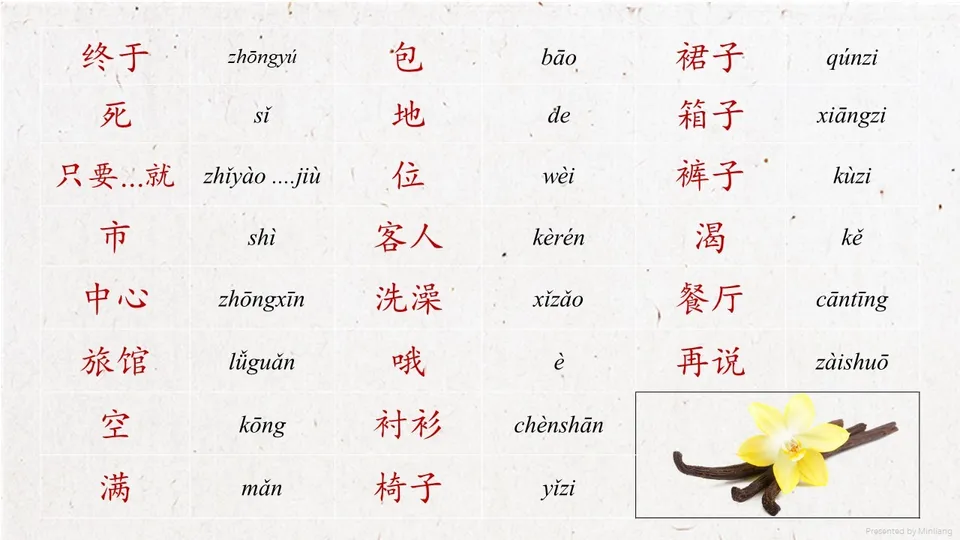 终于 zhōngyú 包 bāo 裙子 qúnzi
死 sǐ 地 de 箱子 xiāngzi
只要...就 zhǐyào ....jiù 位 wèi 裤子 kùzi
市 shì 客人 kèrén 渴 kě
中心 zhōngxīn 洗澡 xǐzǎo 餐厅 cāntīng
旅馆 lǚguǎn 哦 è 再说 zàishuō
空 kōng 衬衫 chènshān
满 mǎn 椅子 yǐzi
Presented by Minliang